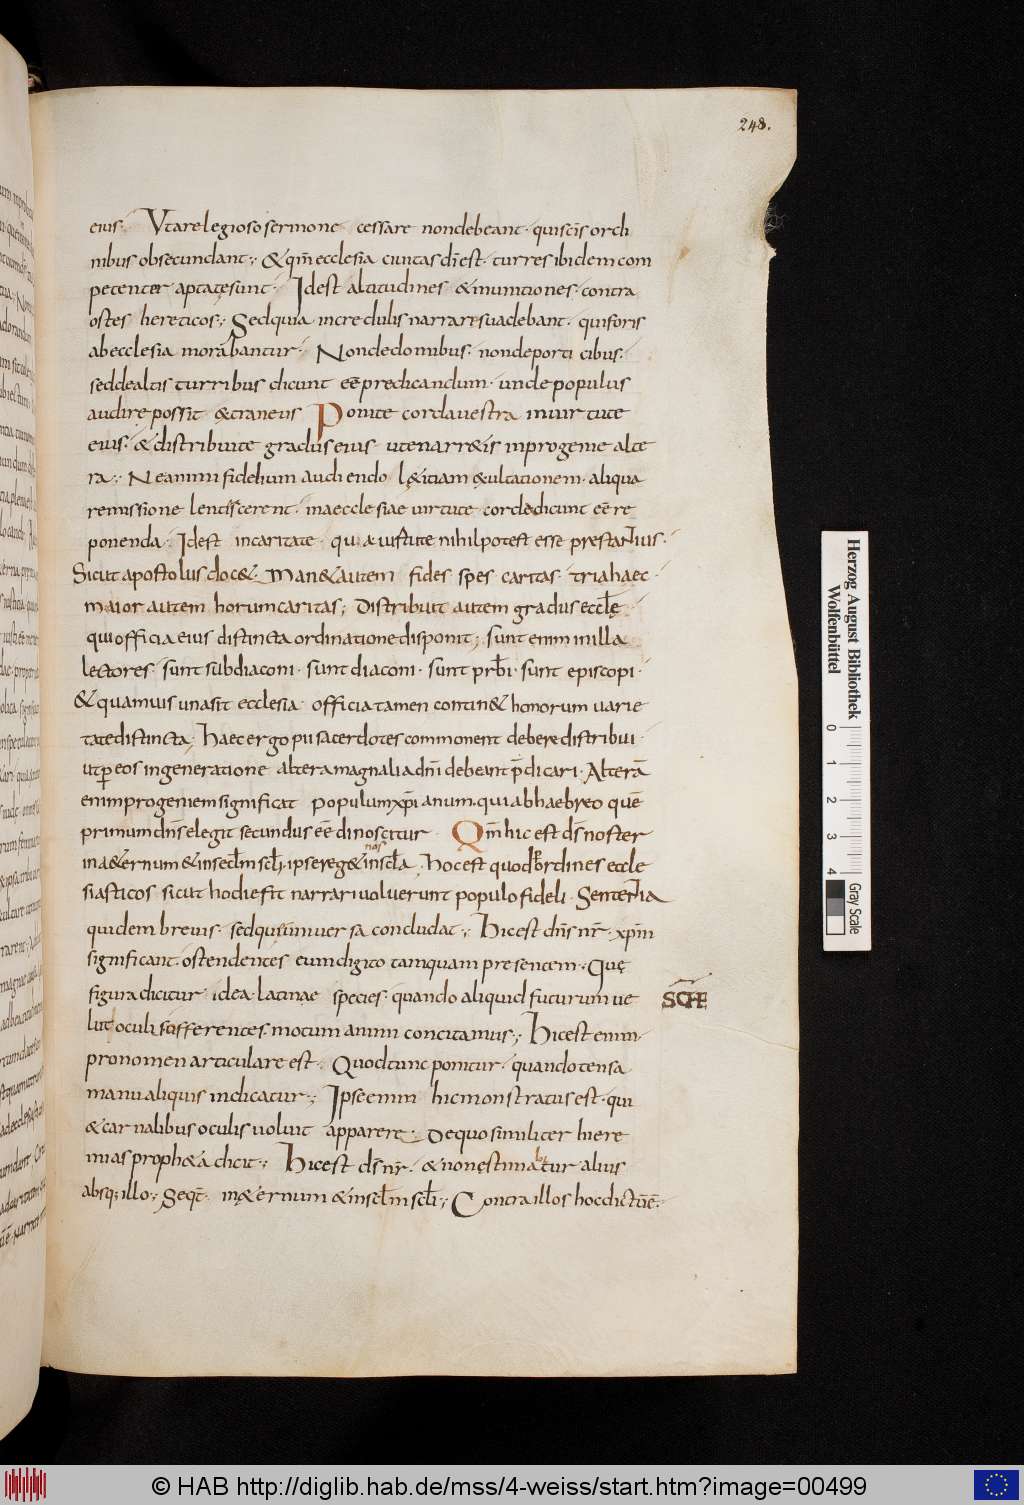 248.
eius· Utare legioso sermone cessare non debeant· qui scīs ordi
nibus obsecundant·; & qm̄ ecclesia ciuitas dī est· turres ibidem com
petenter aptatę sunt· Idest altitudines & munitiones· contra
ostes hereticos·; Sed quia incredulis narrare suadebant· qui foris
ab ecclesia morabantur·; Non de domibus· non de porticibus·
sed de altis turribus dicunt eē predicandum· unde populus
audire possit & traneus Ponite corda uestra in uirtute
eius· & distribuite gradus eius ut enarr&is in progenie alte
ra·; Ne animi fidelium audiendo l&itiam exultationem· aliqua
remissione lentiscerent· in aecclesiae uirtute corde dicunt eē re
ponenda· Idest in caritate qu a uirtute nihil potest esse prestantius·
Sicut apostolus doc& man& autem fides spes caritas· tria haec·
maior autem horum caritas; Distribuit autem gradus ecclę·
qui officia eius distincta ordinatione disponit; sunt enim in illa
lectores· sunt subdiaconi· sunt diaconi· sunt prb̄i· sunt episcopi·
& quamuis una sit ecclesia officia tamen contin& honorum uarie
tate distincta; Haec ergo pii sacerdotes commonent debere distribui·
ut ꝑ eos in generatione altera magnalia dn̄i debeant p̄dicari· Alterā
enim progeniem significat populum xp̄ianum· qui ab haebreo quē
primum dn̄s elegit secundus eē dinoscitur Qm̄ hic est ds̄ noster
nos
in a&ernum & in secl̄m secl̄i· ipse reg& in secl̄a· Hoc est quod ordines eccle
siasticos sicut hodie fit narrari uoluerunt populo fideli· Sententia
quidem breuis· sed qui uniuersa concludat·; Hic est dn̄s nr̄· xp̄m
significant· ostendentes eum digito tamquam presentem· Quę
figura dicitur idea· latinae species· quando aliquid futurum ue
SCHE
lut oculis offerentes· motum animi concitamus·; Hic est enim·
pronomen articulare est· Quod tunc ponitur· quando tensa
manu aliquis indicatur·; Ipse enim hic monstratus est· qui
& carnalibus oculis uoluit apparere· De quo similiter hiere
mias proph&a dicit·; Hic est ds̄ nr̄· & non ęstimabitur alius
absq; illo·; Seq̄t in ęternum & in secl̄m secl̄i·; Contra illos hoc dictū ē·
Herzog August Bibliothek
Wolfenbüttel
0 1 2 3 4
Gray Scale
© HAB http://diglib.hab.de/mss/4-weiss/start.htm?image=00499